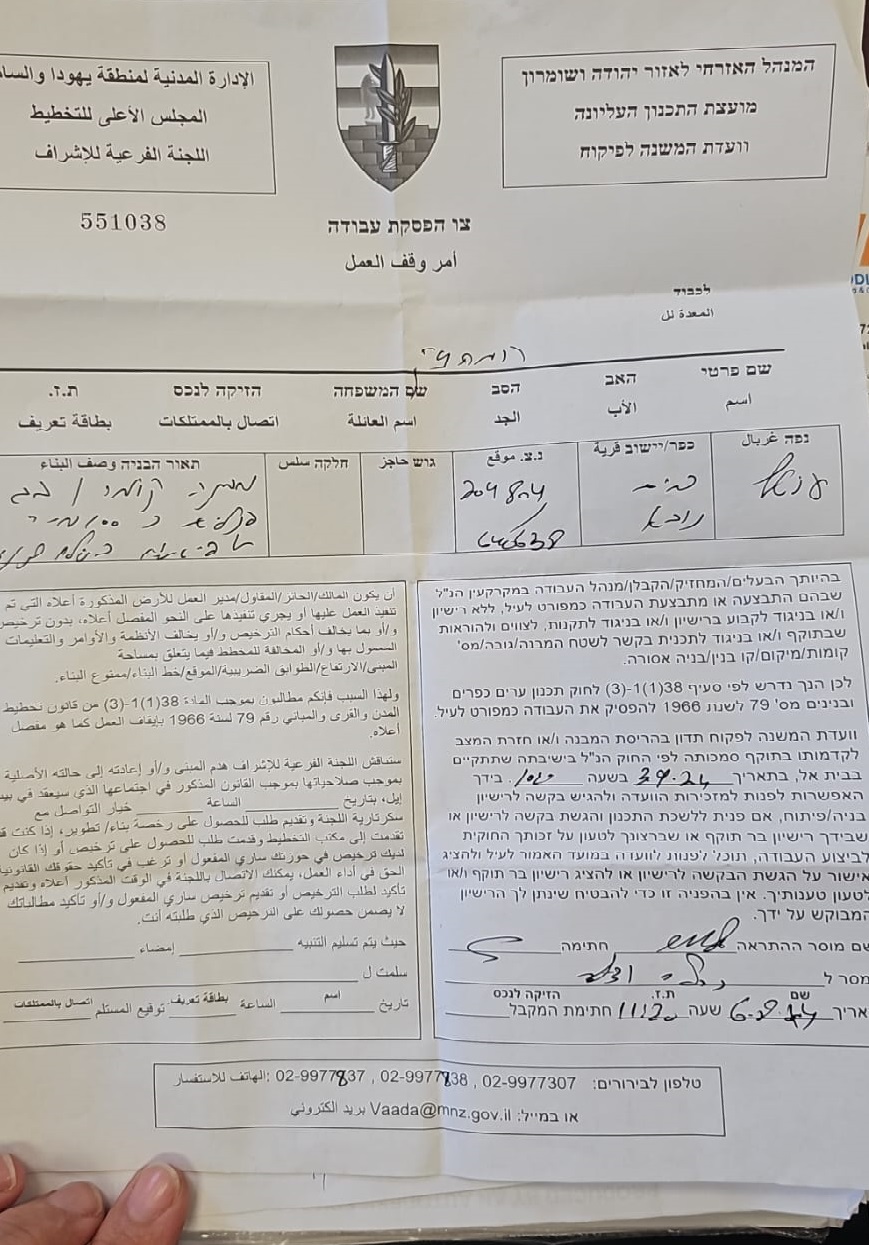 המנהל האזרחי לאזור יהודה ושומרון
מועצת התכנון העליונה
וועדת המשנה לפיקוח
الإدارة المدنية لمنطقة يهودا والسا
المجلس الأعلى للتخطيط
اللجنة الفرعية للإشراف
551038
צו הפסקת עבודה
أمر وقف العمل
לכבוד
המعدة لل
שם פרטי האב הסב שם המשפחה הזיקה לנכס ת.ז.
اسم الأب الجد اسم العائلة اتصال بالممتلكات بطاقة تعريف
נפה غربال כפר/יישוב قرية נ.צ. موقع גוש حاجز חלקה سلس תאור הבניה وصف البناء
204804
בהיותך הבעלים/המחזיק/הקבלן/מנהל העבודה במקרקעין הנ"ל
שבהם התבצעה או מתבצעת העבודה כמפורט לעיל, ללא רישיון
ו/או בניגוד לקבוע ברישיון ו/או בניגוד לתקנות, לצווים ולהוראות
שבתוקף ו/או בניגוד לתכנית בקשר לשטח המבנה/גובה/מס'
קומות/מיקום/קו בנין/בניה אסורה.
לכן הנך נדרש לפי סעיף 38(1)1-(3) לחוק תכנון ערים כפרים
ובנינים מס' 79 לשנת 1966 להפסיק את העבודה כמפורט לעיל.
וועדת המשנה לפקוח תדון בהריסת המבנה ו/או חזרת המצב
לקדמותו בתוקף סמכותה לפי החוק הנ"ל בישיבתה שתתקיים
בבית אל, בתאריך בשעה בידך
האפשרות לפנות למזכירות הוועדה ולהגיש בקשה לרישיון
בניה/פיתוח, אם פנית ללשכת התכנון והגשת בקשה לרישיון או
שבידך רישיון בר תוקף או שברצונך לטעון על זכותך החוקית
לביצוע העבודה, תוכל לפנות לוועדה במועד האמור לעיל ולהציג
אישור על הגשת הבקשה לרישיון או להציג רישיון בר תוקף ו/או
לטעון טענותיך. אין בהפניה זו כדי להבטיח שינתן לך הרישיון
המבוקש על ידך.
שם מוסר ההתראה חתימה
מסר ל
שם ת.ז. הזיקה לנכס
אריך 6.8.24 שעה 11:20 חתימת המקבל
أن يكون المالك/الحائز/المقاول/مدير العمل للأرض المذكورة أعلاه التي تم
تنفيذ العمل عليها أو يجري تنفيذها على النحو المفصل أعلاه، بدون ترخيص
و/أو بما يخالف أحكام الترخيص و/أو يخالف الأنظمة والأوامر والتعليمات
المعمول بها و/أو المخالفة للمخطط فيما يتعلق بمساحة
المبنى/الارتفاع/الطوابق الضريبية/الموقع/خط البناء/ممنوع البناء.
ولهذا السبب فانكم مطالبون بموجب المادة 38(1)1-(3) من قانون تخطيط
المدن والقرى والمباني رقم 79 لسنة 1966 بإيقاف العمل كما هو مفصل
أعلاه.
ستناقش اللجنة الفرعية للإشراف هدم المبنى و/أو إعادته إلى حالته الأصلية
بموجب صلاحياتها بموجب القانون المذكور في اجتماعها الذي سيعقد في بيت
إيل، بتاريخ الساعة خيار التواصل مع
سكرتارية اللجنة وتقديم طلب للحصول على رخصة بناء/ تطوير، إذا كنت
تقدمت إلى مكتب التخطيط وقدمت طلب للحصول على ترخيص أو إذا كان
لديك ترخيص في حوزتك ساري المفعول أو ترغب في تأكيد حقوقك القانونية
الحق في أداء العمل، يمكنك الاتصال باللجنة في الوقت المذكور أعلاه وتقديم
تأكيد لطلب الترخيص أو تقديم ترخيص ساري المفعول و/أو تأكيد مطالباتك
لا يضمن حصولك على الترخيص الذي طلبته أنت.
حيث يتم تسليم التنبيه إمضاء
سلمت ل
اسم بطاقة تعريف اتصال بالممتلكات
تاريخ الساعة توقيع المستلم
טלפון לבירורים: 02-9977307 , 02-9977838 , 02-9977837 :الهاتف للاستفسار
או במייל: Vaada@mnz.gov.il بريد الكتروني